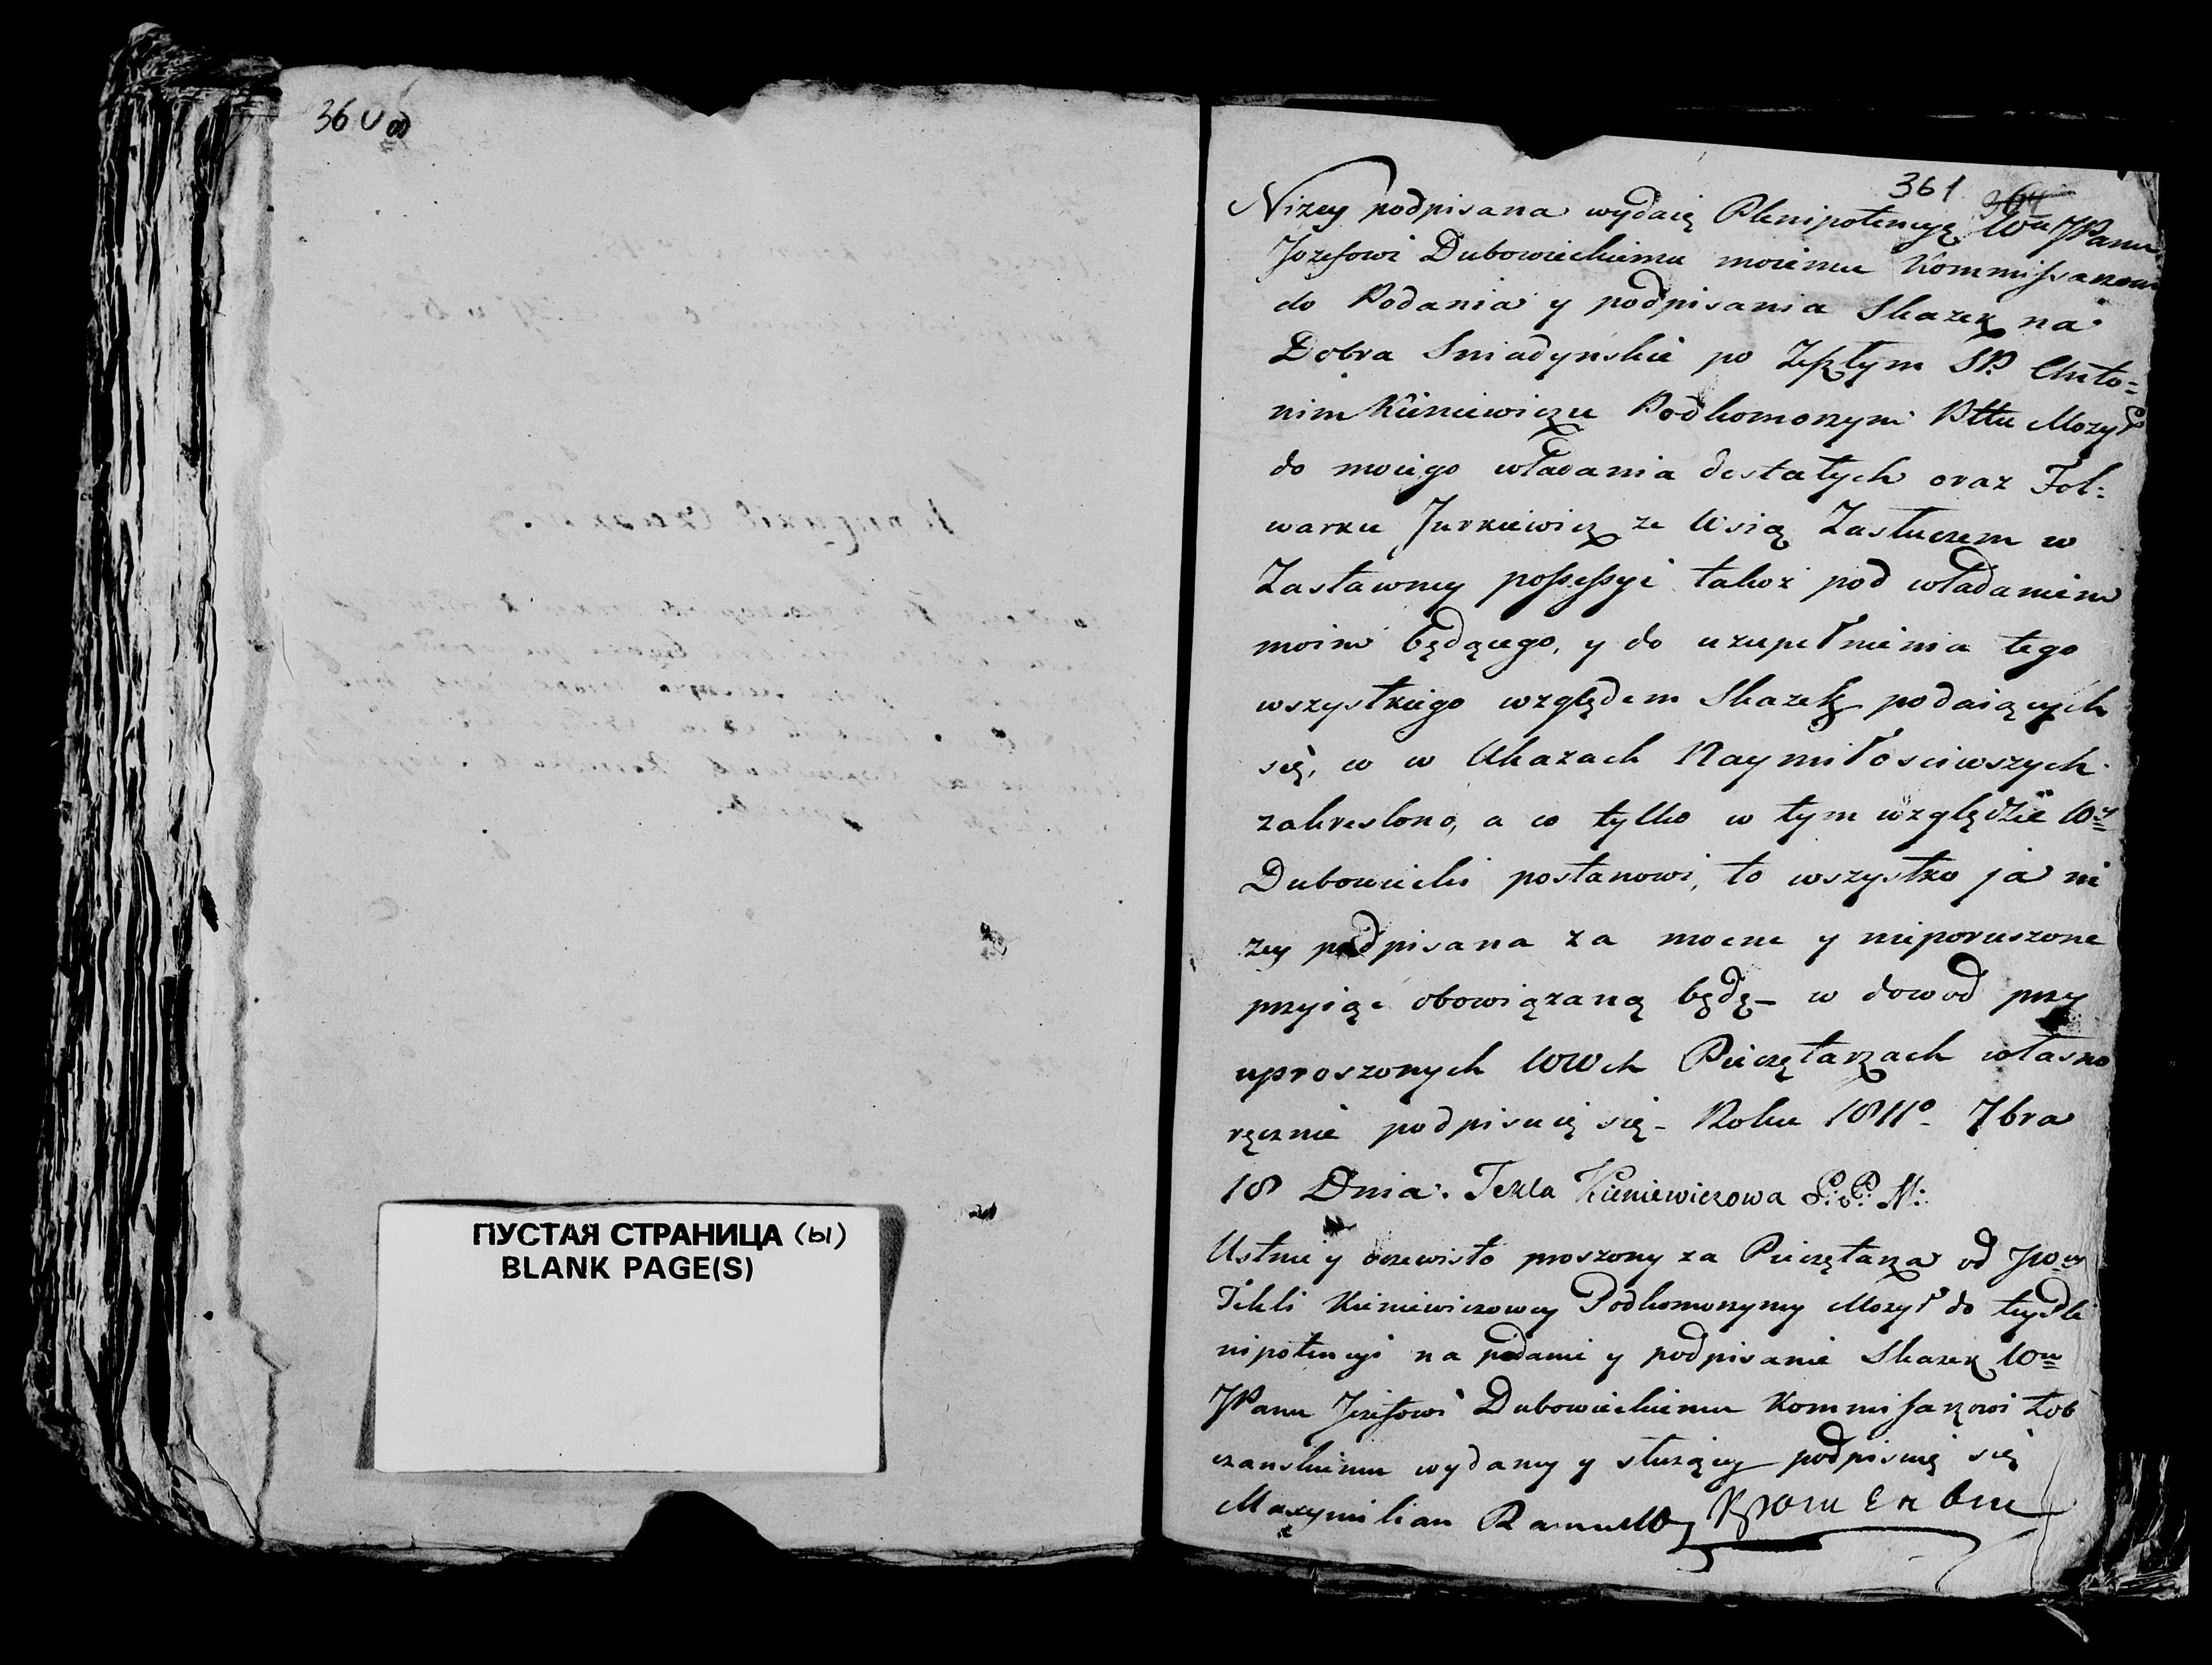 360 об
ПУСТАЯ СТРАНИЦА (ы)
BLANK PAGE(S)
361
Nizey podpisana wydaię Plenipotencyą Wmu JPanu
Jozefowi Dubowieckiemu moiemu Kommissarzowi
do Podania y podpisania Skazek na
Dobra Sniadyńskie po Zeszłym SP. Anto=
nim Kieniewiczu Podkomorzym Pttu Mozyr
do moiego władania dostałych oraz Fol=
warku Jurkiewicz ze Wsią Zasłuczem w
Zastawney possessyi takoż pod władaniem
moim będącego, y do uzupełnienia tego
wszystkiego względem Skazek podaiących
się, co w Ukazach Naymiłosciwszych
zakreslono, a co tylko w tym względzie Wy
Dubowiecki postanowi, to wszystko ja ni
zey podpisana za mocne y nieporuszone
przyiąć obowiązaną będę – w dowod przy
uproszonych WWch Pieczętarzach własno
ręcznie podpisuię się – Roku 1811o 7bra
18 Dnia. Tekla Kieniewiczowa P: P: M:
Ustnie y oczewisto proszony za Pieczętarza od JW
Tekli Kieniewiczowey Podkomorzyney Mozyr do tey Ple
nipotencyi na podanie y podpisanie Skazek Wmu
JPanu Jozefowi Dubowieckiemu Kommissarzowi
czanskiemu wydaney y służącey podpisuię się
Maxymilian